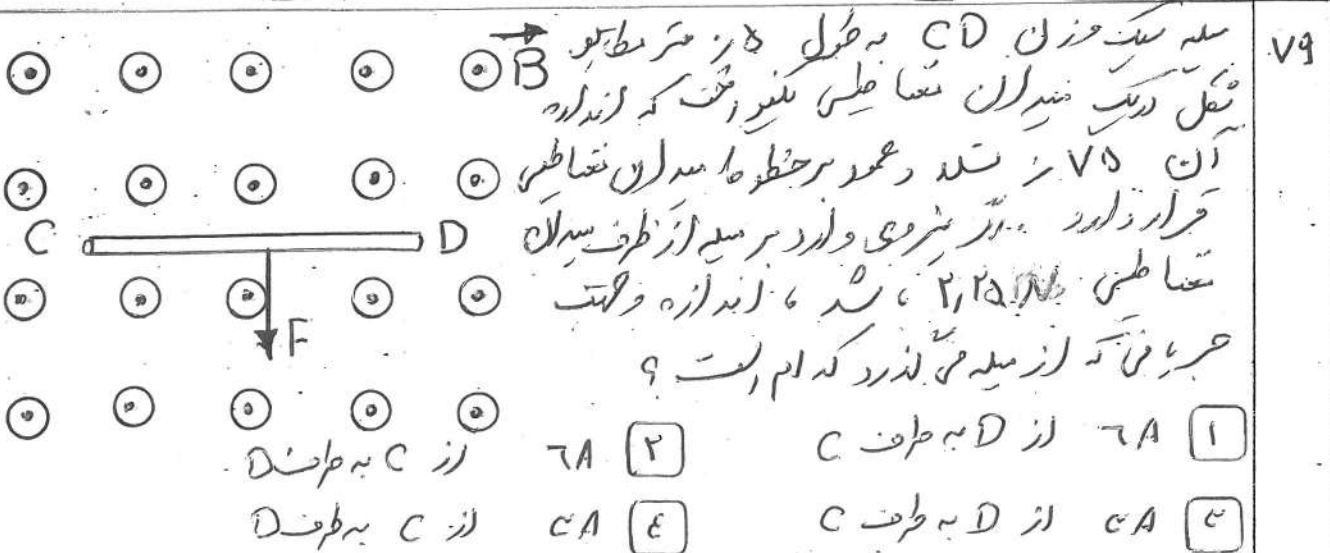 ٧٩
میله سبک وزن CD به طول ۵٫ متر مطابق
شکل در یک میدان مغناطیسی یکنواخت که اندازه
آن ٧۵٫ تسلا و عمود بر خطوط میدان مغناطیسی
قرار دارد . اگر نیروی وارد بر میله از طرف میدان
مغناطیسی ۲٫۲۵ N باشد ، اندازه و جهت
جریانی که از میله می گذرد کدام است ؟
۱ ٦A از D به طرف C
۲ ٦A از C به طرف D
۳ ۳A از D به طرف C
٤ ۳A از C به طرف D
B
C
D
F